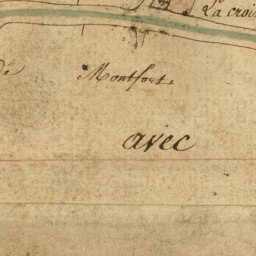 La croi
de Montfort
avec